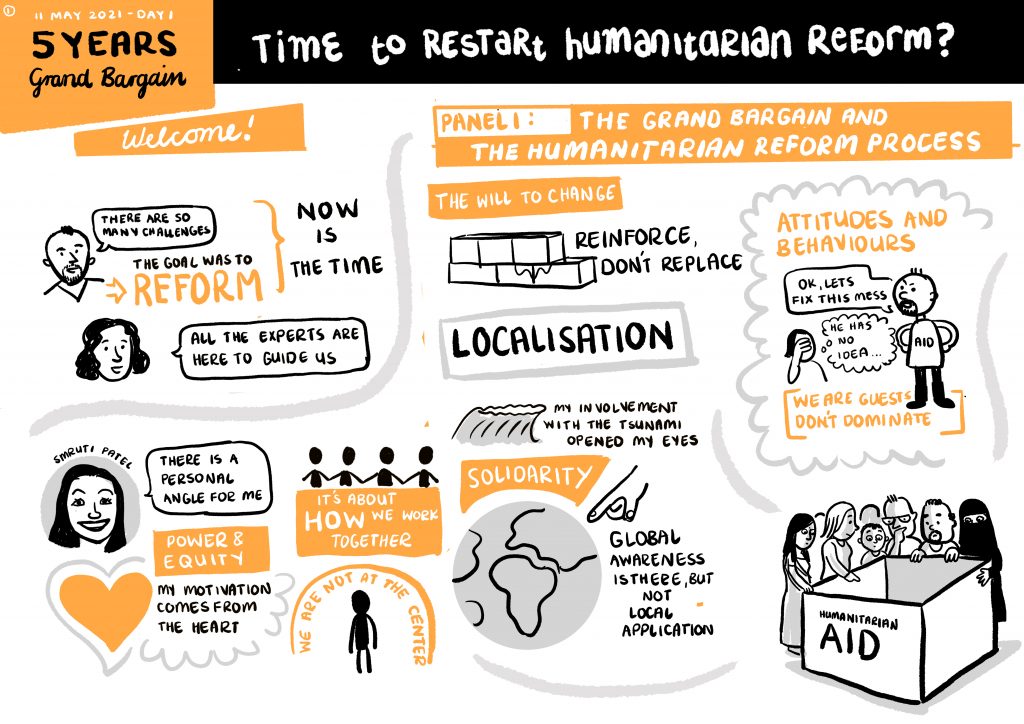 1
11 MAY 2021 - DAY 1
5 YEARS
Grand Bargain
TIME to RESTART humaNitaRiaN REFORM?
Welcome!
THERE ARE SO
MANY CHALLENGES
THE GOAL WAS TO
REFORM
NOW
IS
THE TIME
ALL THE EXPERTS ARE
HERE TO GUIDE US
SMRUTI PATEL
THERE IS A
PERSONAL
ANGLE FOR ME
POWER &
EQUITY
MY MOTIVATION
COMES FROM
THE HEART
IT'S ABOUT
HOW WE WORK
TOGETHER
WE ARE NOT AT THE CENTER
PANEL 1: THE GRAND BARGAIN AND
THE HUMANITARIAN REFORM PROCESS
THE WILL TO CHANGE
REINFORCE,
DON'T REPLACE
LOCALISATION
MY INVOLVEMENT
WITH THE TSUNAMI
OPENED MY EYES
SOLIDARITY
GLOBAL
AWARENESS
IS THERE, BUT
NOT
LOCAL
APPLICATION
ATTITUDES AND
BEHAVIOURS
OK, LETS
FIX THIS MESS
HE HAS
NO
IDEA...
AID
WE ARE GUESTS
DON'T DOMINATE
HUMANITARIAN
AID